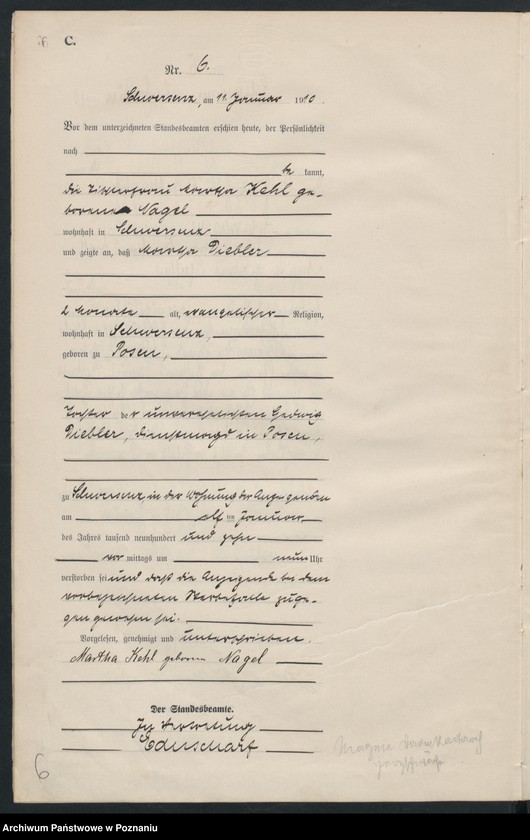 C.
Nr. 6.
Schwersenz, am 11. Januar 1910.
Vor dem unterzeichneten Standesbeamten erschien heute, der Persönlichkeit
nach
be kannt,
die Martha Kehl ge-
borene Nagel
wohnhaft in Schwersenz
und zeigte an, daß Martha Diebler
2 Monate alt, evangelischer Religion,
wohnhaft in Schwersenz,
geboren zu Posen,
Tochter der unverehelichten Hedwig
Diebler, Dienstmagd in Posen,
zu Schwersenz, in der Wohnung der Anzeigenden
am elften Januar
des Jahres tausend neunhundert und zehn
vor mittags um neun Uhr
verstorben sei und daß die Anzeigende bei dem
vorbezeichneten Sterbefalle zuge-
gen gewesen sei.
Vorgelesen, genehmigt und unterschrieben.
Martha Kehl geborene Nagel
Der Standesbeamte.
In Vertretung
Ederscharf
6
Archiwum Państwowe w Poznaniu